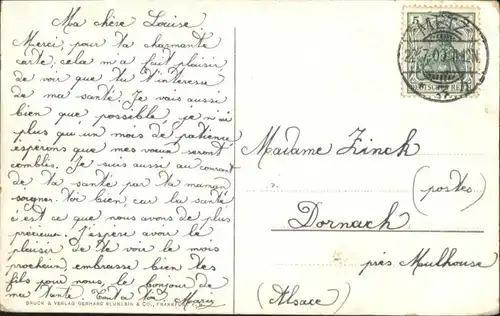 Ma chère Louise.
Merci, pour ta charmante
carte, cela m'a fait plaisir
de voir que tu t'interesse
de ma santé. Je vais aussi
bien que possible, je n'ai
plus qu'un mois de patience
esperons que mes voeux seront
comblés. Je suis aussi au courant
de ta santé par ta maman
soignes-toi bien car la santé
c'est ce que nous avons de plus
précieux. J'espère avoir le
plaisir de te voir le mois
prochain, embrasse bien tes
fils pour nous, le bonjour de
ma tante. Tout à toi Marie
DRUCK & VERLAG GERHARD BLÜMLEIN & CO., FRANKFURT
5
METZ
DEUTSCHES REICH
Madame Zinch
(postes)
Dornach
près Mulhouse
(Alsace)